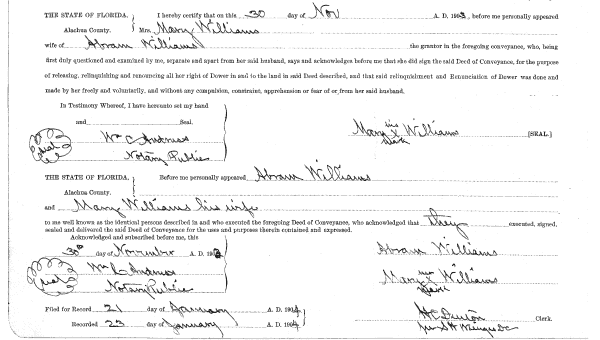 THE STATE OF FLORIDA, I hereby certify that on this 30 day of Nov A. D. 1903, before me personally appeared
Alachua County. Mrs. Mary Williams
wife of Abram Williams the grantor in the foregoing conveyance, who, being
first duly questioned and examined by me, separate and apart from her said husband, says and acknowledges before me that she did sign the said Deed of Conveyance, for the purpose
of releasing, relinquishing and renouncing all her right of Dower in and to the land in said Deed described, and that said relinquishment and Renunciation of Dower was done and
made by her freely and voluntarily, and without any compulsion, constraint, apprehension or fear of or from her said husband.
In Testimony Whereof, I have hereunto set my hand
and Seal.
Wm C Andruss
Seal
Notary Public
her
Mary x Williams [SEAL.]
mark
THE STATE OF FLORIDA. Before me personally appeared Abram Williams
Alachua County.
and Mary Williams his wife
to me well known as the identical persons described in and who executed the foregoing Deed of Conveyance, who acknowledged that they executed, signed,
sealed and delivered the said Deed of Conveyance for the uses and purposes therein contained and expressed.
Acknowledged and subscribed before me, this
30th day of November A. D. 190
Abram Williams
Wm C Andruss
Seal
Notary Public
her
Mary x Williams
mark
Filed for Record 21 day of January A. D. 1904
Recorded 23 day of January A. D. 1904
H C Denton Clerk.